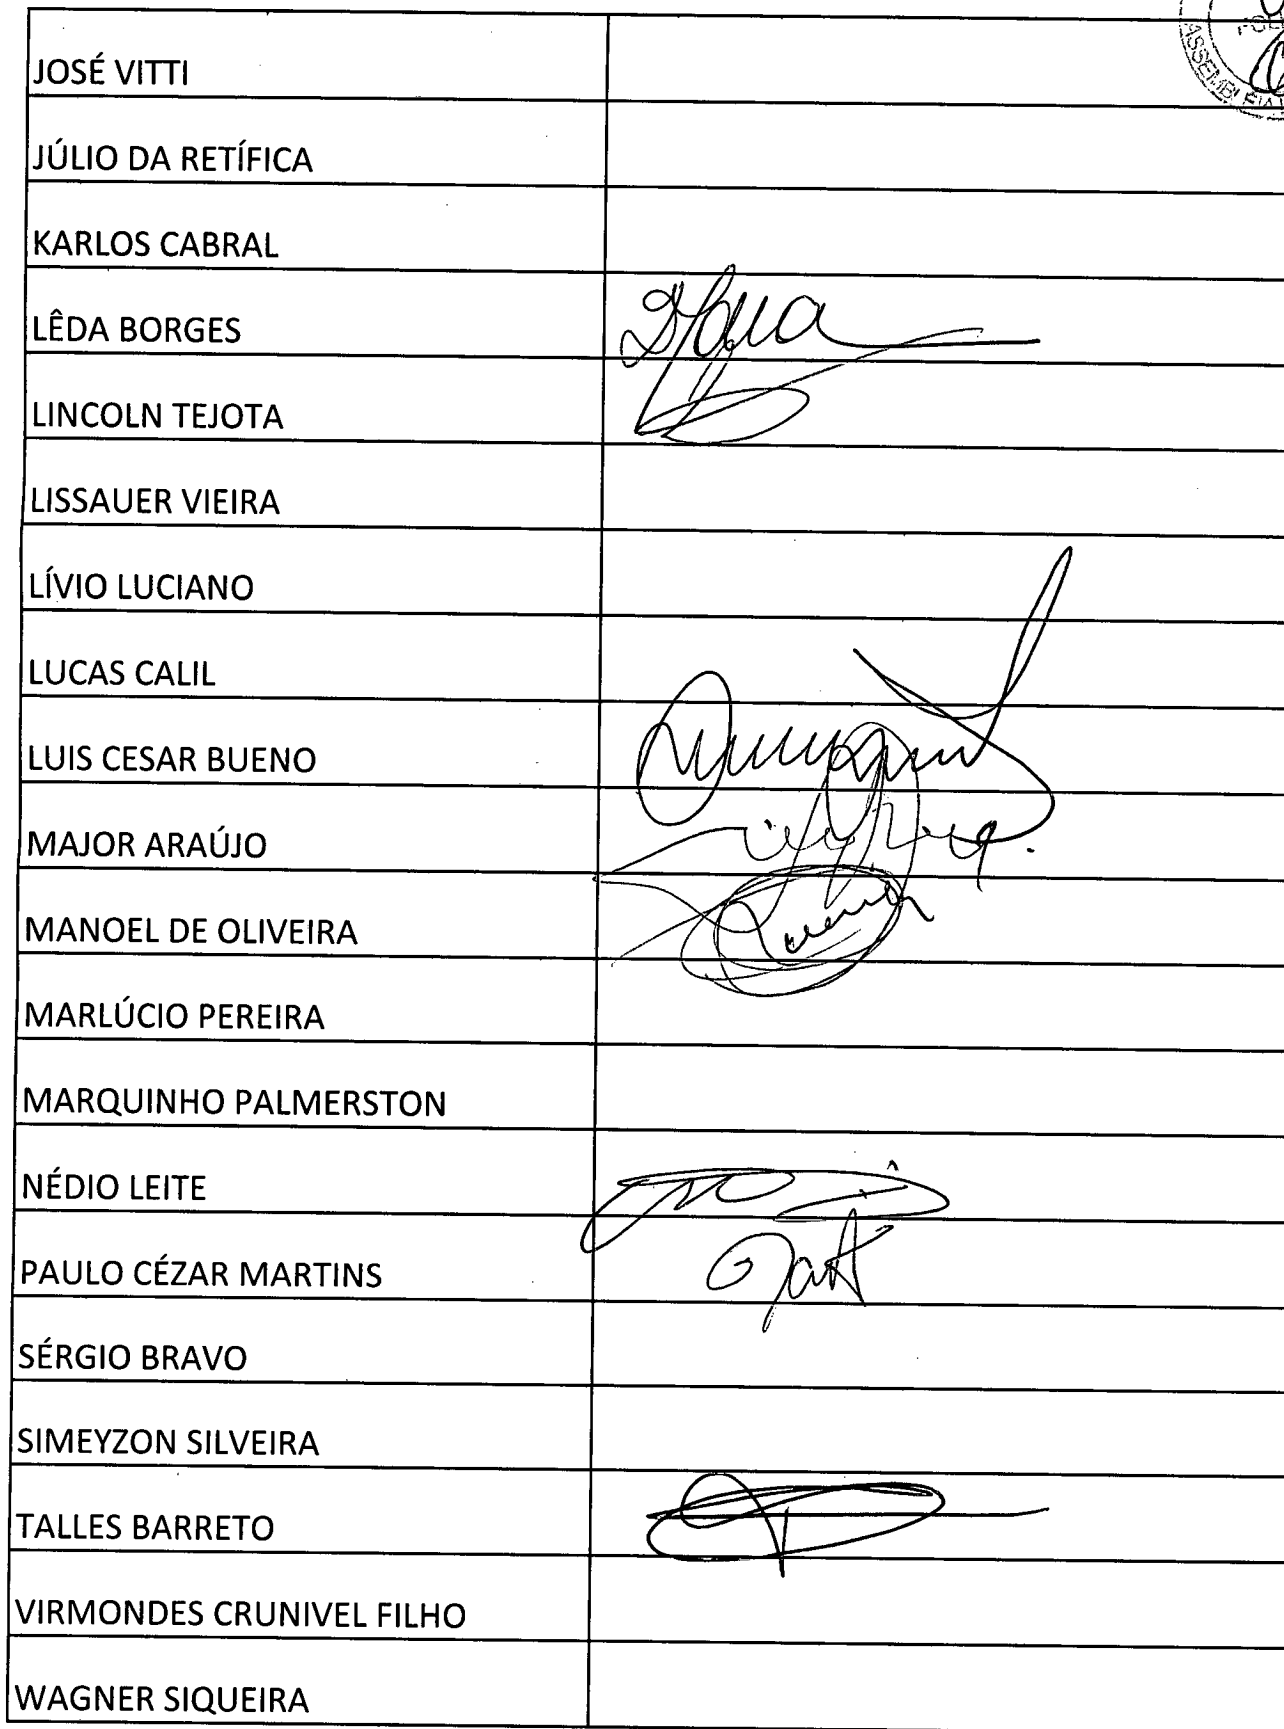 JOSÉ VITTI
JÚLIO DA RETÍFICA
KARLOS CABRAL
LÊDA BORGES
LINCOLN TEJOTA
LISSAUER VIEIRA
LÍVIO LUCIANO
LUCAS CALIL
LUIS CESAR BUENO
MAJOR ARAÚJO
MANOEL DE OLIVEIRA
MARLÚCIO PEREIRA
MARQUINHO PALMERSTON
NÉDIO LEITE
PAULO CÉZAR MARTINS
SÉRGIO BRAVO
SIMEYZON SILVEIRA
TALLES BARRETO
VIRMONDES CRUNIVEL FILHO
WAGNER SIQUEIRA